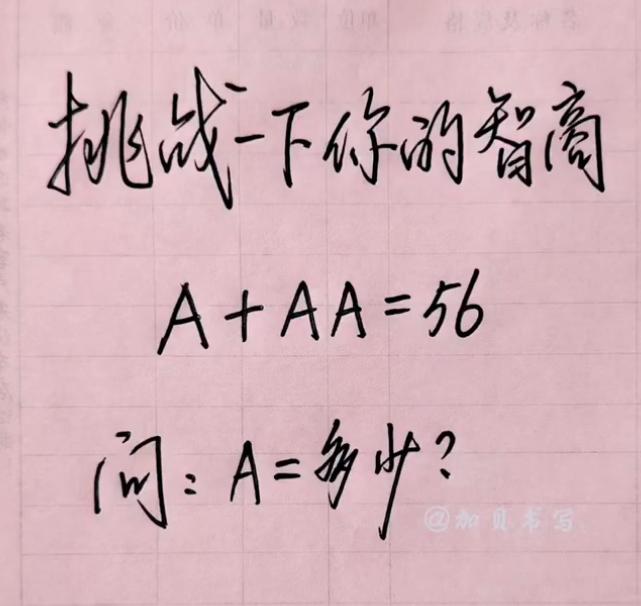 挑战一下你的智商
A+AA=56
问：A=多少？
@加贝书写